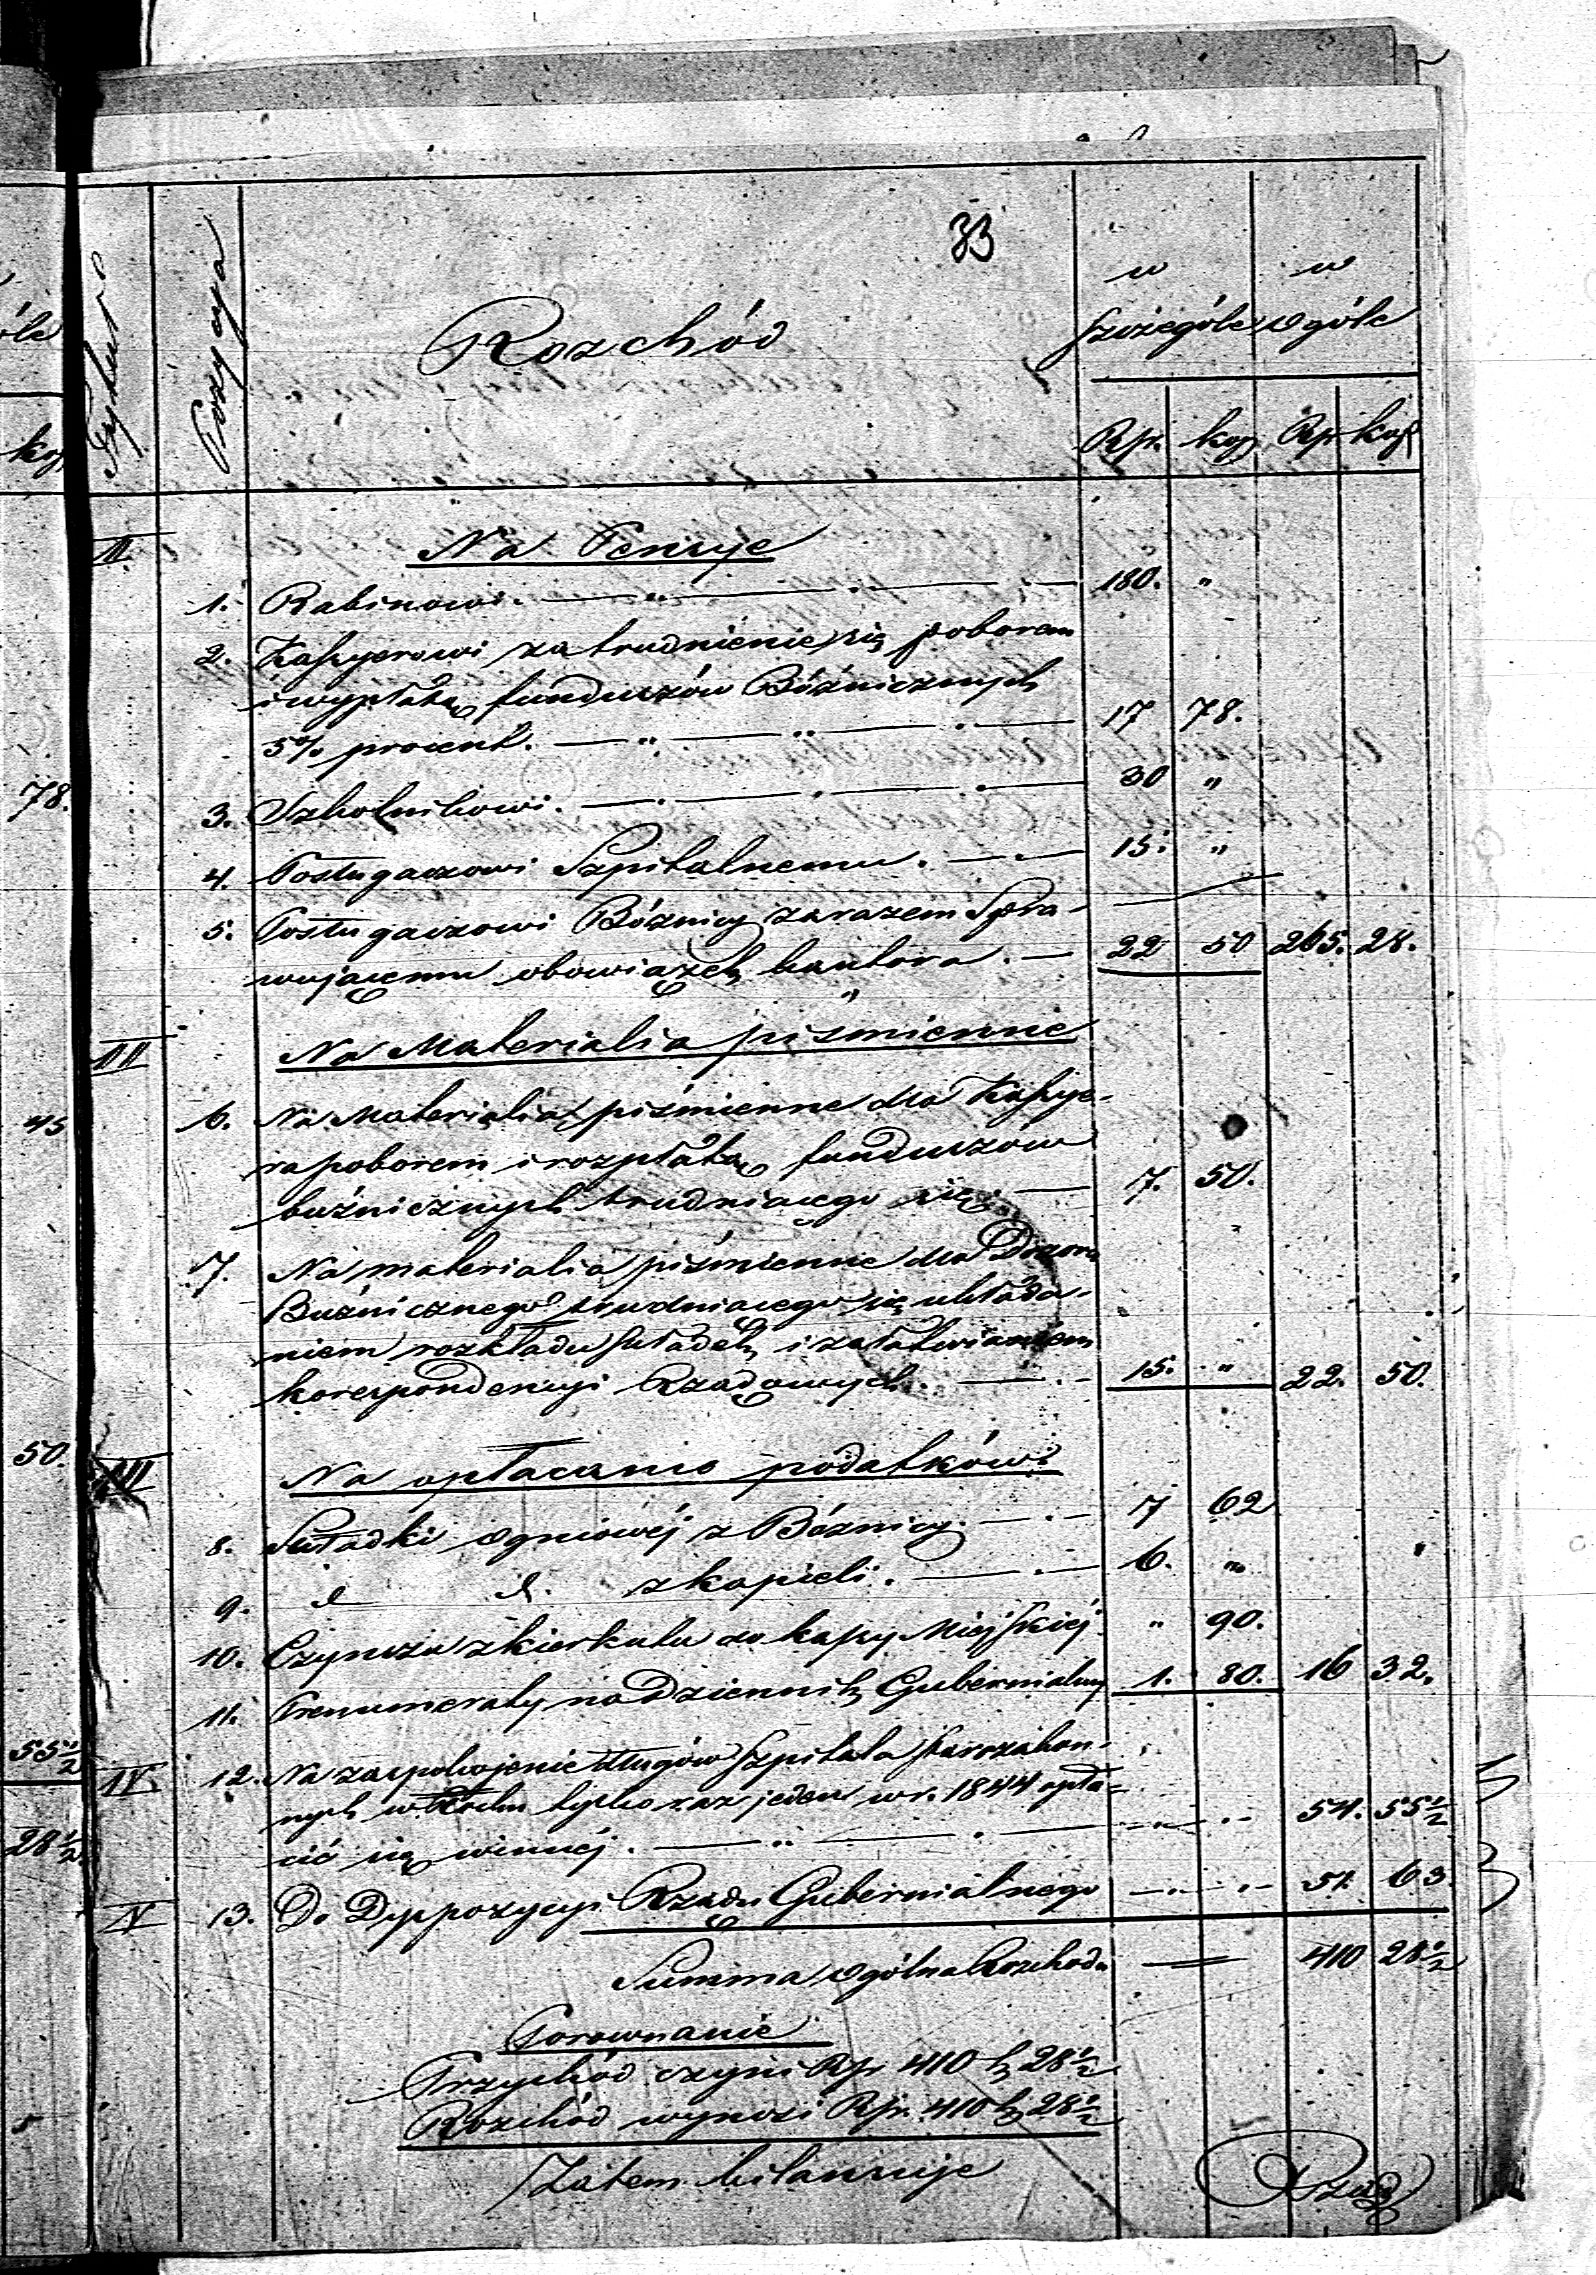 33
Tytuł
Pozycya
Rozchód
w
w
szczególe
ogóle
Rs.
kop
Rs
kop
II.
Na Pensye
1. Rabinowi. 180. "
2. Kassyerowi zatrudnienie się poborem
i wypłatą funduszów Bóźnicznych
5% procent. 17 78.
3. Szkolnikowi. 30 "
4. Posługaczowi Szpitalnemu. 15. "
5. Posługaczowi Bóznicy zarazem Spra-
wującemu obowiązek kantora. 22 50 265. 28.
III
Na Materialia piśmienne
6. Na Materialia piśmienne dla Kassye-
ra poborem i rozpłatą funduszów
bużnicznych trudniącego się. 7. 50.
7. Na materialia piśmienne dla Dozoru
Bużnicznego trudniącego się układa-
niem rozkładu składek i załatwianiem
korespondencyi Rządowych. 15. " 22. 50.
III
Na opłacanie podatków
8. Składki ogniowéj z Bóznicy. 7 62
9. d d. z kąpieli. 6. "
10. Czynszu z kierkutu do kassy Miejskiéj " 90.
11. Prenumeraty na Dziennik Gubernialny 1. 80. 16 32.
IV.
12. Na zaspokojenie długów Szpitala Starozakon-
nych w tylko raz jeden w r. 1844 opła-
cić się winnéj. 54. 55 1/2
V
13. Do Dyspozycyi Rządu Gubernialnego 51. 63.
Summa ogólna Rozchodu 410 28 1/2
Porownanie
Przychód czyni Rs 410 k 28 1/2
Rozchód wynosi Rs. 410 k 28 1/2
Zatem bilansuje
Rząd
óle
kop
78.
45
50.
55 1/2
28 1/2
5